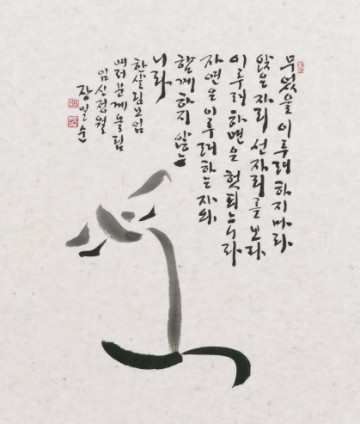 무엇을 이루려 하지마라.
앉은자리 선자리를 보라
이루려 하면은 헛되느니라
자연은 이루려 하는 자와
함께 하지 않느
니라
한살림모임
여러분께 올림
임신정월
장일순